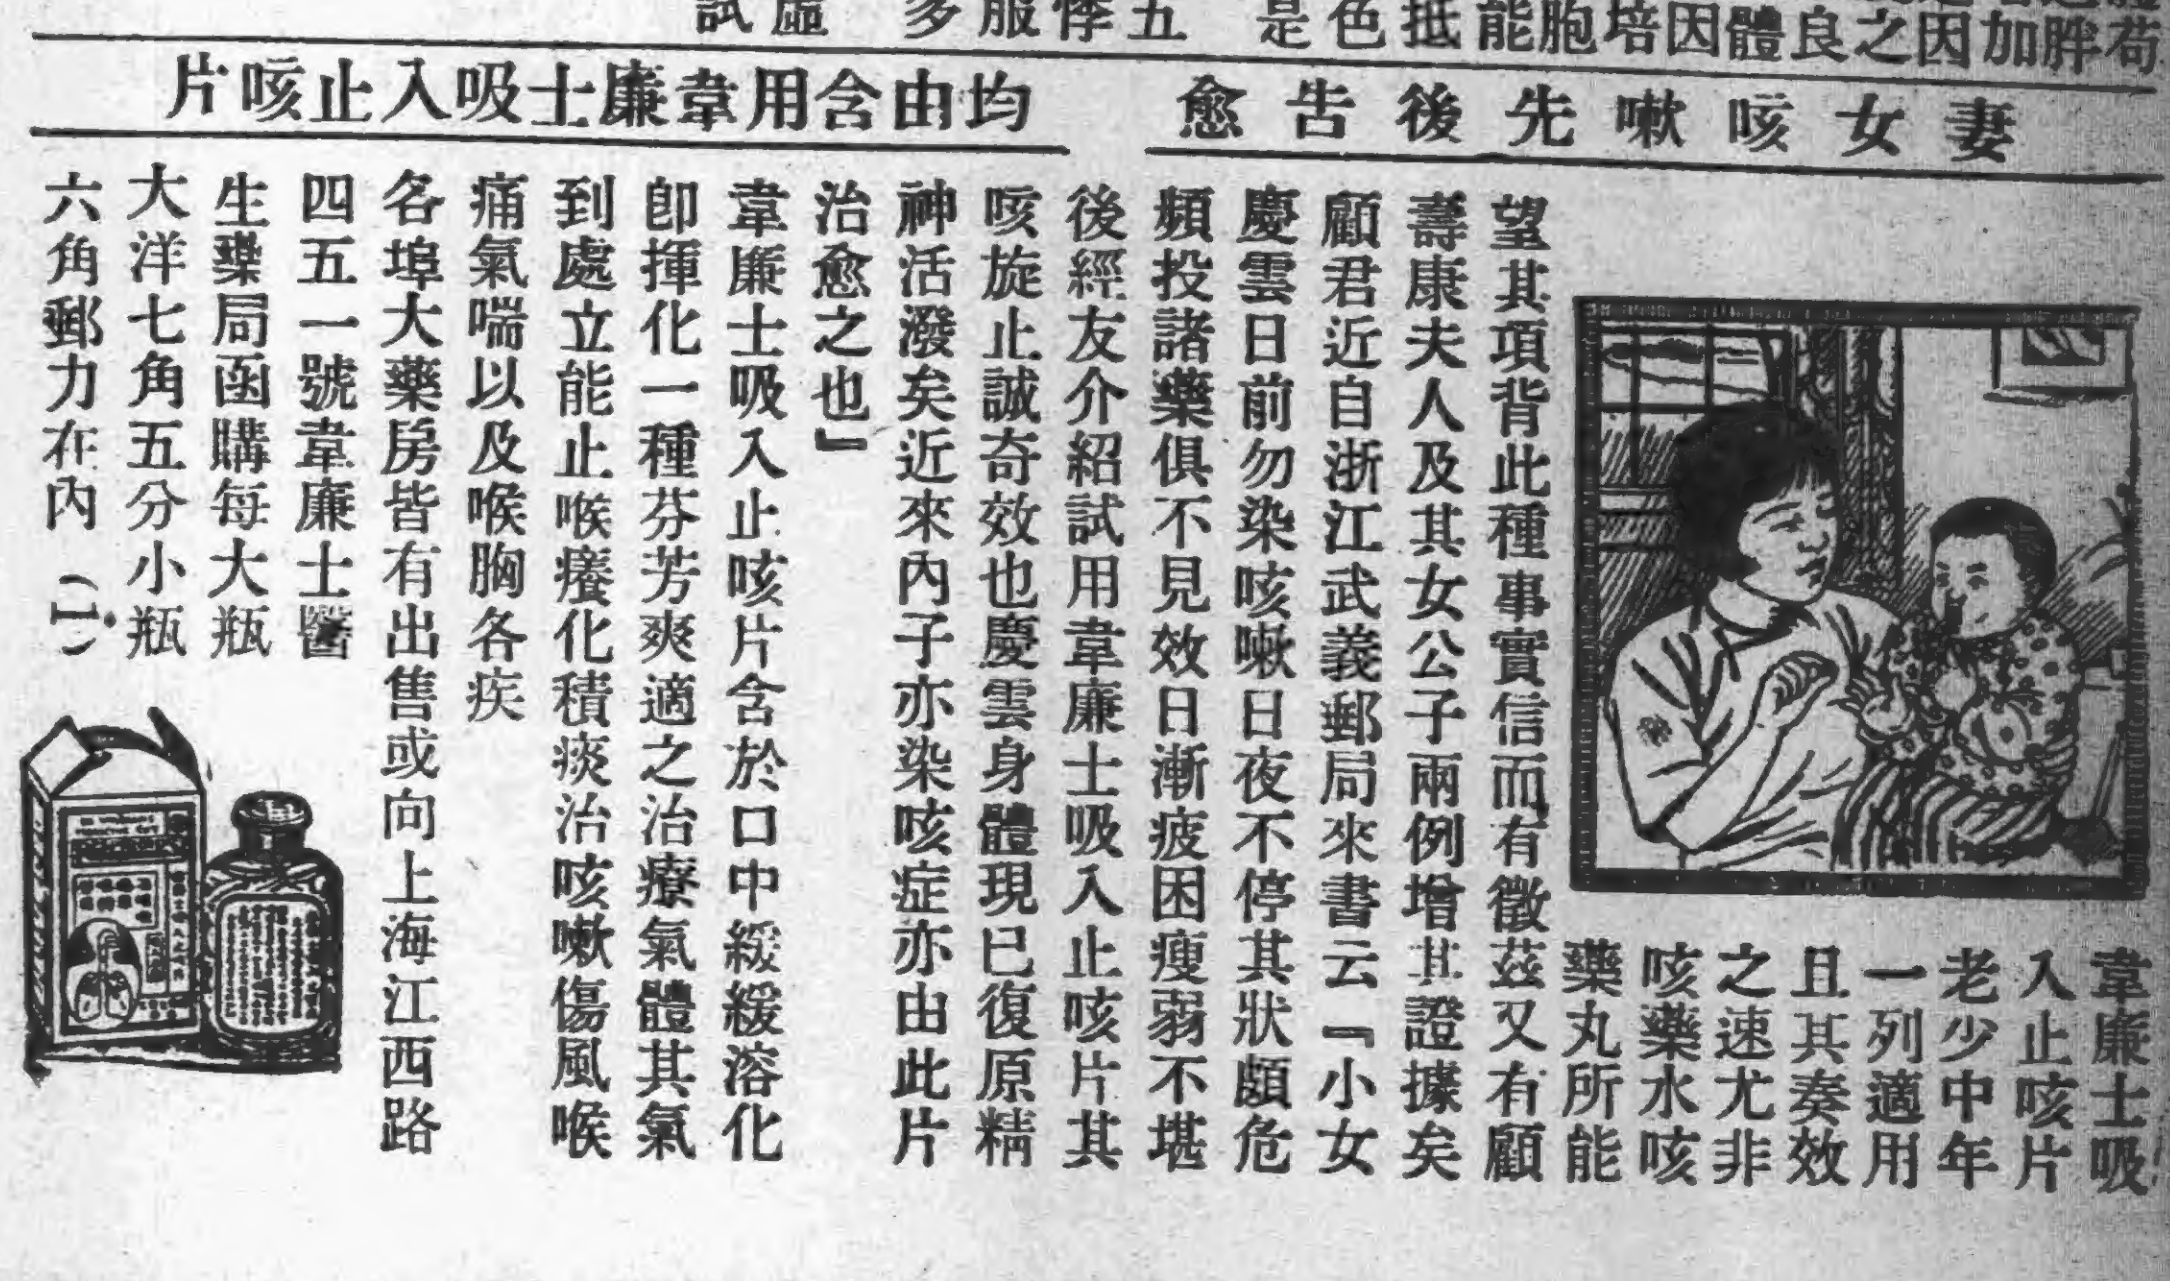 苟胖加因之良體因培胞能抵色是五悸服多虛試
妻女咳嗽先後告愈
均由含用韋廉士吸入止咳片
韋廉士吸
入止咳片
老少中年
一列適用
且其奏效
之速尤非
咳藥水咳
藥丸所能
望其項背此種事實信而有徵茲又有顧
壽康夫人及其女公子兩例增其證據矣
顧君近自浙江武義郵局來書云『小女
慶雲日前勿染咳嗽日夜不停其狀頗危
頻投諸藥俱不見效日漸疲困瘦弱不堪
後經友介紹試用韋廉士吸入止咳片其
咳旋止誠奇效也慶雲身體現已復原精
神活潑矣近來內子亦染咳症亦由此片
治愈之也』
韋廉士吸入止咳片含於口中緩緩溶化
卽揮化一種芬芳爽適之治療氣體其氣
到處立能止喉癢化積痰治咳嗽傷風喉
痛氣喘以及喉胸各疾
各埠大藥房皆有出售或向上海江西路
四五一號韋廉士醫
生藥局函購每大瓶
大洋七角五分小瓶
六角郵力在內(1)